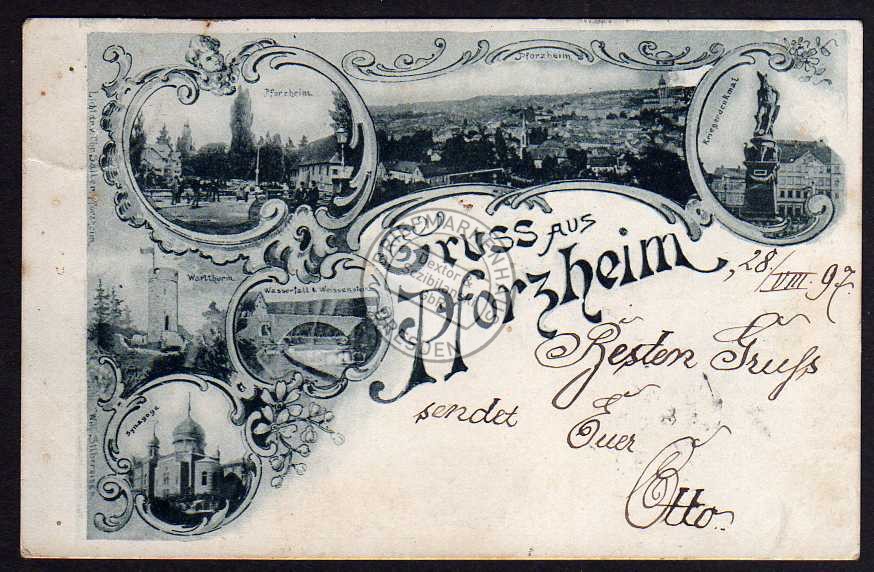 Pforzheim
Pforzheim.
Kriegerdenkmal
Gruss aus
Pforzheim
, 28/VIII. 97.
Wartthurm
Wasserfall b. Weissenstein
Besten Gruss
sendet Euer
Otto.
Synagoge
BRIEFMARKENHAUS
Dextor &
Sozibilanz
GbR
DRESDEN